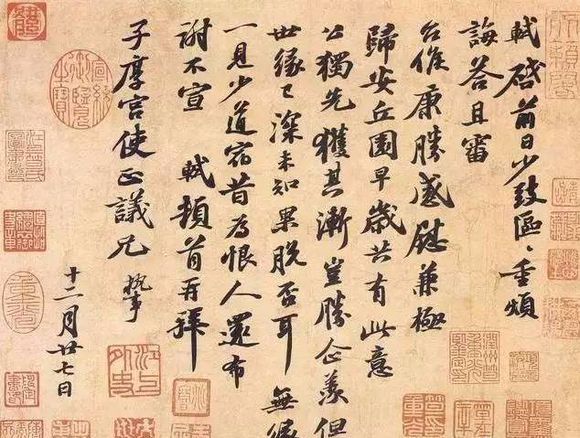 軾啓前日少致區〻重煩
誨答且審
台候康勝感慰兼極
歸安丘園早歲共有此意
公獨先獲其漸豈勝企羨但
世緣已深未知果脫否耳 無緣
一見少道宿昔為恨人還布
謝不宣 軾頓首再拜
子厚宮使正議兄 執事
十二月廿七日